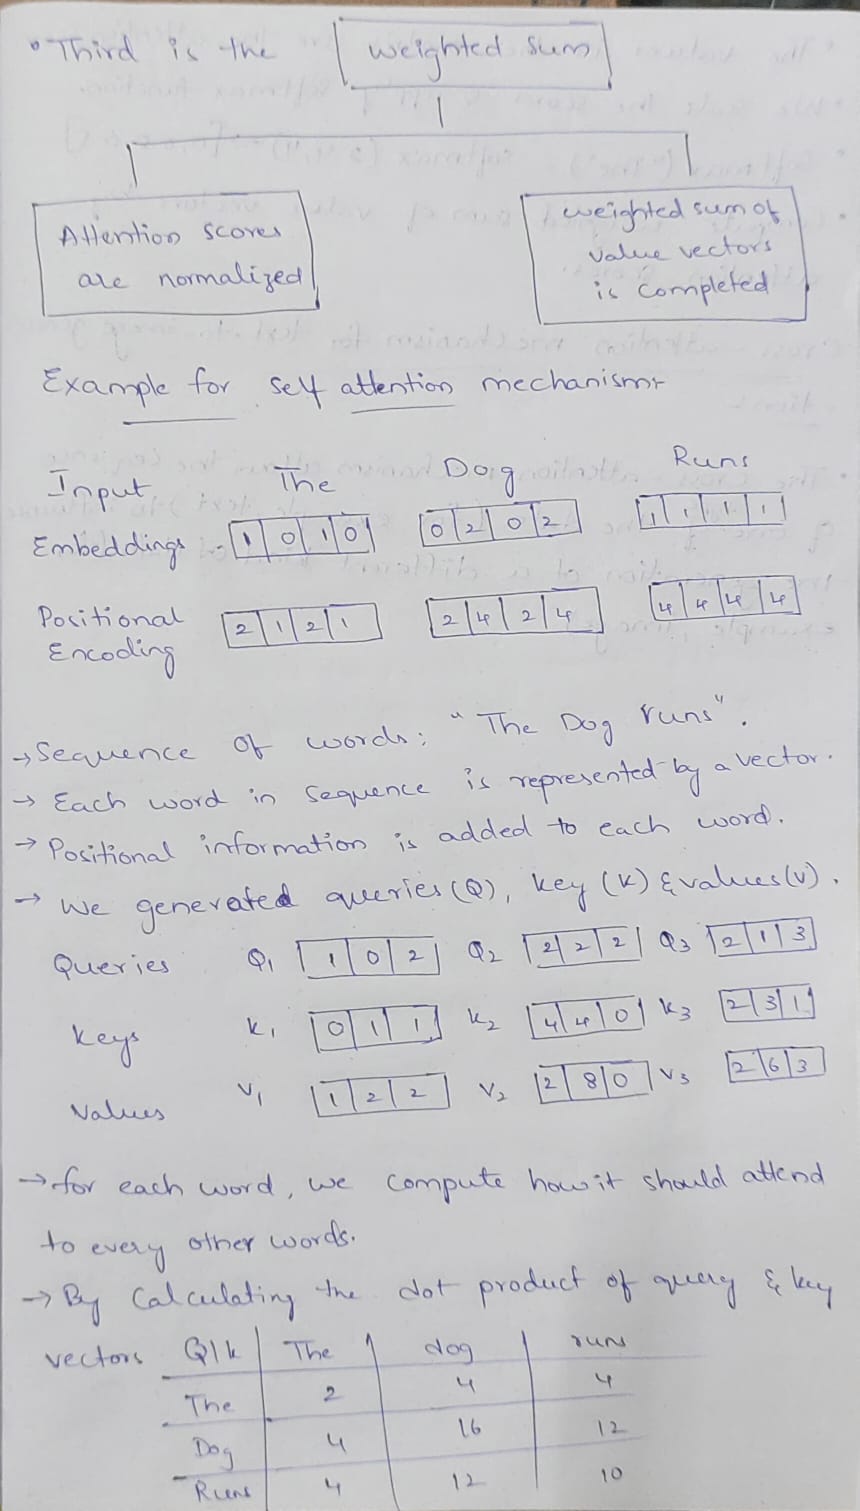 • Third is the weighted sum
Attention scores
are normalized
weighted sum of
value vectors
is completed
Example for self attention mechanism:-
Input The Dog Runs
Embeddings - 1 0 1 0 0 2 0 2 1 1 1 1
Positional
Encoding 2 1 2 1 2 4 2 4 4 4 4 4
→ Sequence of words: "The Dog runs".
→ Each word in sequence is represented by a vector.
→ Positional information is added to each word.
→ We generated queries (Q), key (K) & values (V).
Queries Q1 1 0 2 Q2 2 2 2 Q3 2 1 3
Keys K1 0 1 1 K2 4 4 0 K3 2 3 1
Values V1 1 2 2 V2 2 8 0 V3 2 6 3
→ for each word, we compute how it should attend
to every other words.
→ By Calculating the dot product of query & key
vectors Q|k The dog runs
The 2 4 4
Dog 4 16 12
Runs 4 12 10